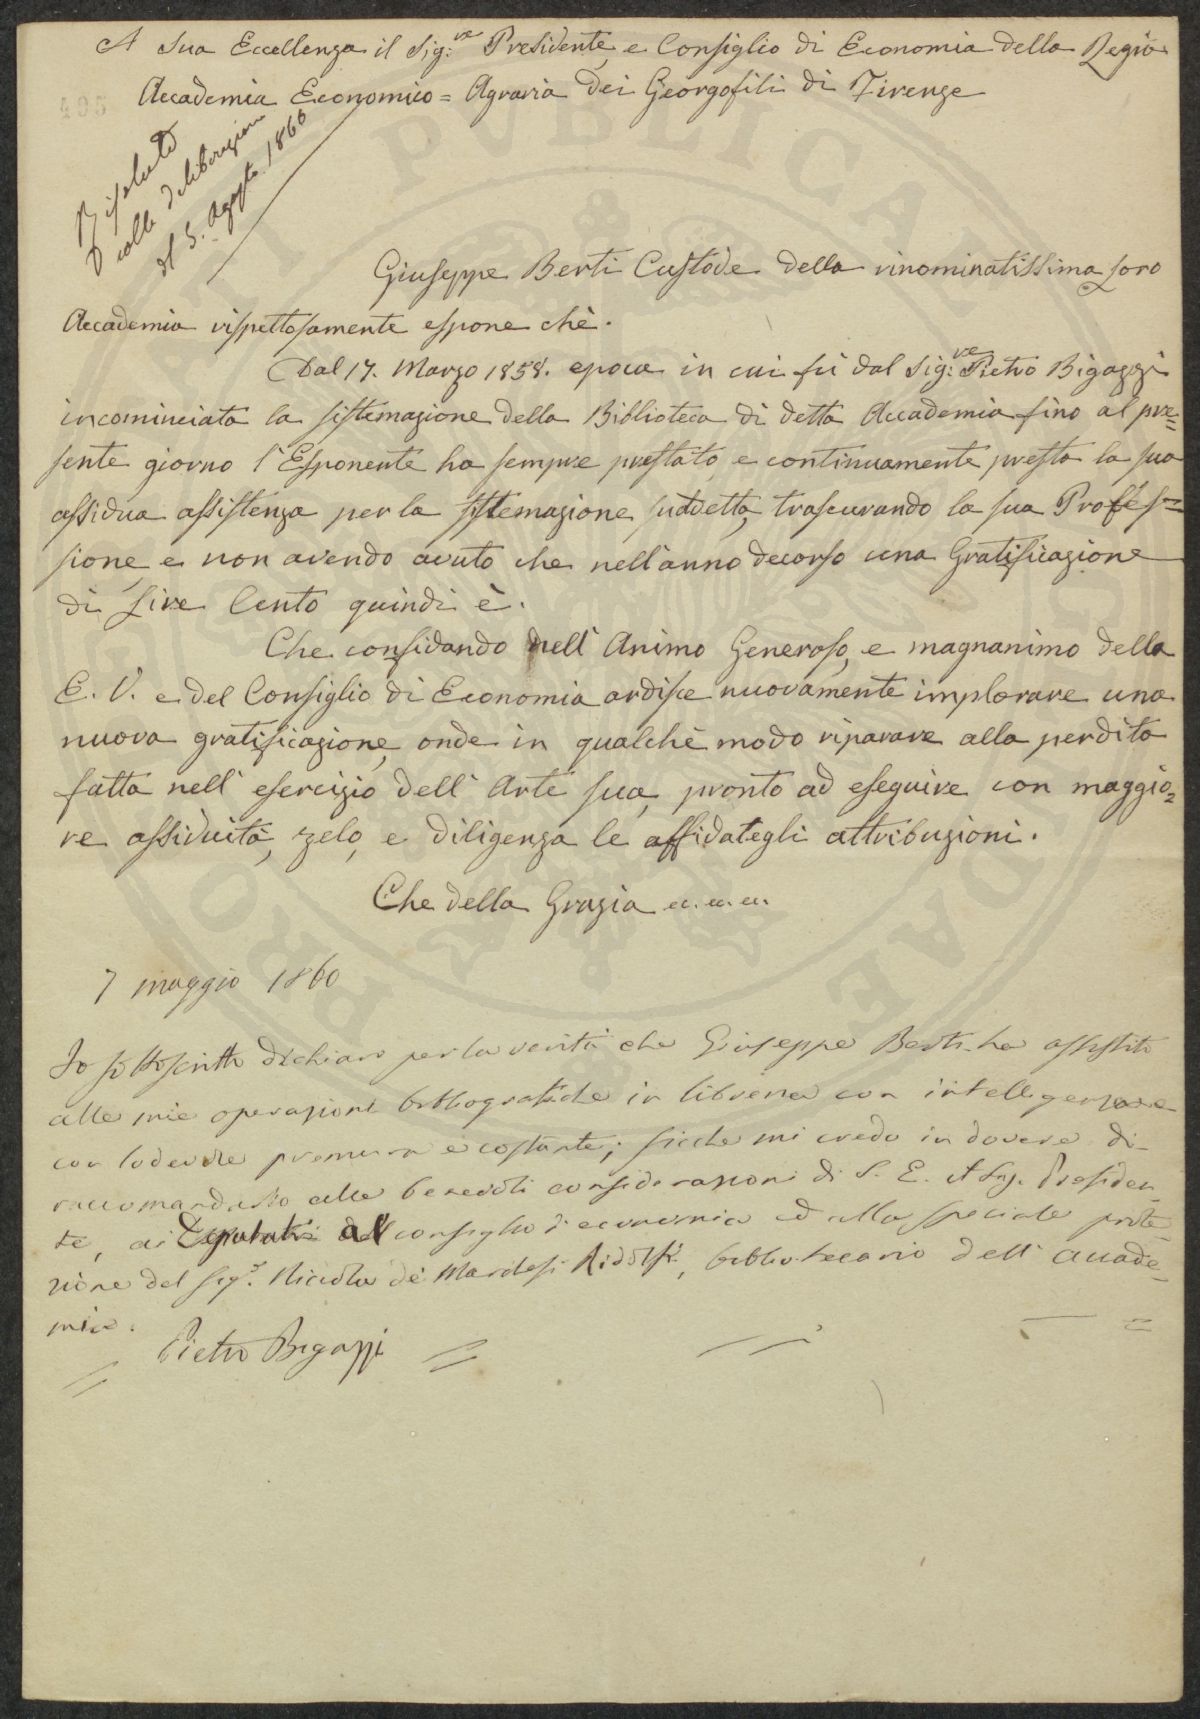 A Sua Eccellenza il Sig:re Presidente, e Consiglio di Economia della Regia
Accademia Economico = Agraria dei Georgofili di Firenze
Risoluto
colle deliberazioni
del 5. Agosto 1860
Giuseppe Berti Custode della rinominatissima loro
Accademia rispettosamente espone chè.
Dal 17. Marzo 1858. epoca in cui fù dal Sig:re Pietro Bigazzi
incominciata la sistemazione della Biblioteca di detta Accademia fino al pre=
sente giorno l'Esponente ha sempre prestato, e continuamente presta la sua
assidua assistenza per la sistemazione suddetta, trascurando la sua Profes=
sione, e non avendo avuto che nell'anno decorso una Gratificazione
di Lire Cento quindi è.
Che confidando nell'Animo Generoso, e magnanimo della
E. V. e del Consiglio di Economia ardisce nuovamente implorare una
nuova gratificazione, onde in qualchè modo riparare alla perdita
fatta nell'esercizio dell'Arte sua, pronto ad eseguire con maggio=
re assiduità, zelo, e diligenza le affidategli attribuzioni.
Che della Grazia ec. ec. ec.
7 maggio 1860
Io sottoscritto dichiaro per la verità che Giuseppe Berti ha assistito
alle mie operazioni bibliografiche in libreria con intelligenza e
con lodevole premura e costante; sicche mi credo in dovere di
raccomandarlo alle benevoli considerazioni di S. E. il Sig. Presiden-
te, ai Deputati del consiglio d'economia ed alla speciale prote-
zione del Sig.r Niccolò de' Marchesi Ridolfi, bibliotecario dell'Accade-
mia.
Pietro Bigazzi
PVBLICAE
PRO